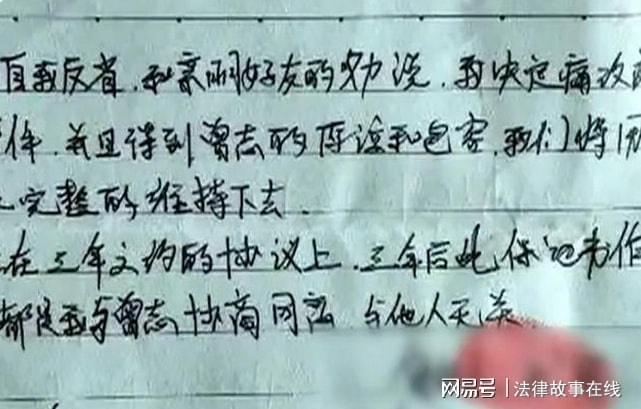 自我反省，和亲朋好友的劝说，我决定痛改
并且得到曾志的原谅和包容，我们将
完整的维持下去．
在三年之约的协议上，三年后此保证书作
都是我与曾志协商同意 与他人无关
网易号 | 法律故事在线